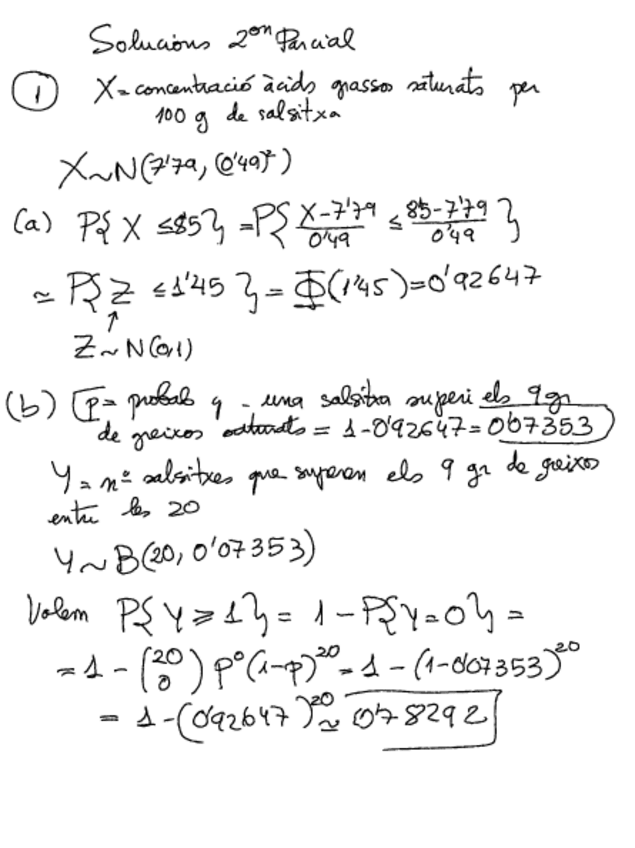 Solucions 2on Parcial
1 X = concentració àcids grassos saturats per
100 g de salsitxa
X ~ N(7'79, (0'49)²)
(a) P{ X ≤ 8'5 } = P{ (X-7'79)/0'49 ≤ (8'5-7'79)/0'49 }
≃ P{ Z ≤ 1'45 } = Φ(1'45) = 0'92647
↑
Z ~ N(0,1)
(b) p = probab q - una salsitxa superi els 9 gr
de greixos saturats = 1-0'92647 = 0'07353
Y = nº salsitxes que superen els 9 gr de greixos
entre les 20
Y ~ B(20, 0'07353)
Volem P{ Y ≥ 1 } = 1 - P{ Y = 0 } =
= 1 - (20 0) p⁰(1-p)²⁰ = 1 - (1-0'07353)²⁰
= 1-(0'92647)²⁰ ≃ 0'78292